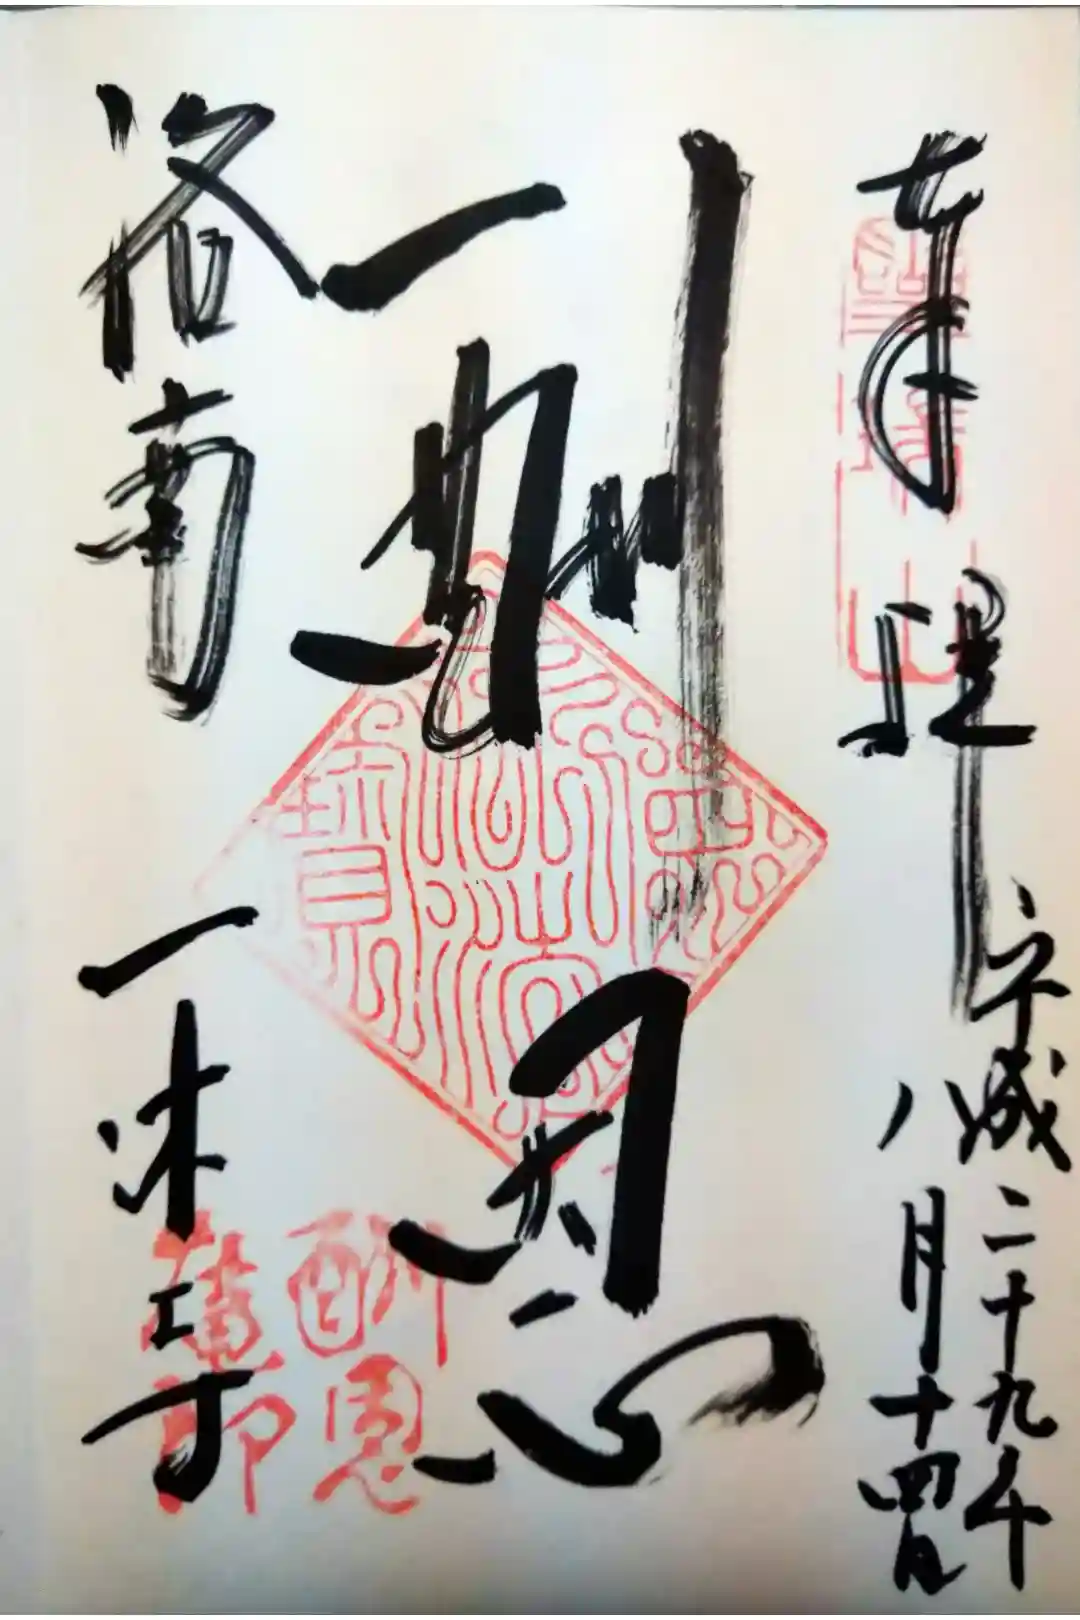 奉拝
平成二十九年
八月十四日
酬恩
洛南 一休寺
酬恩